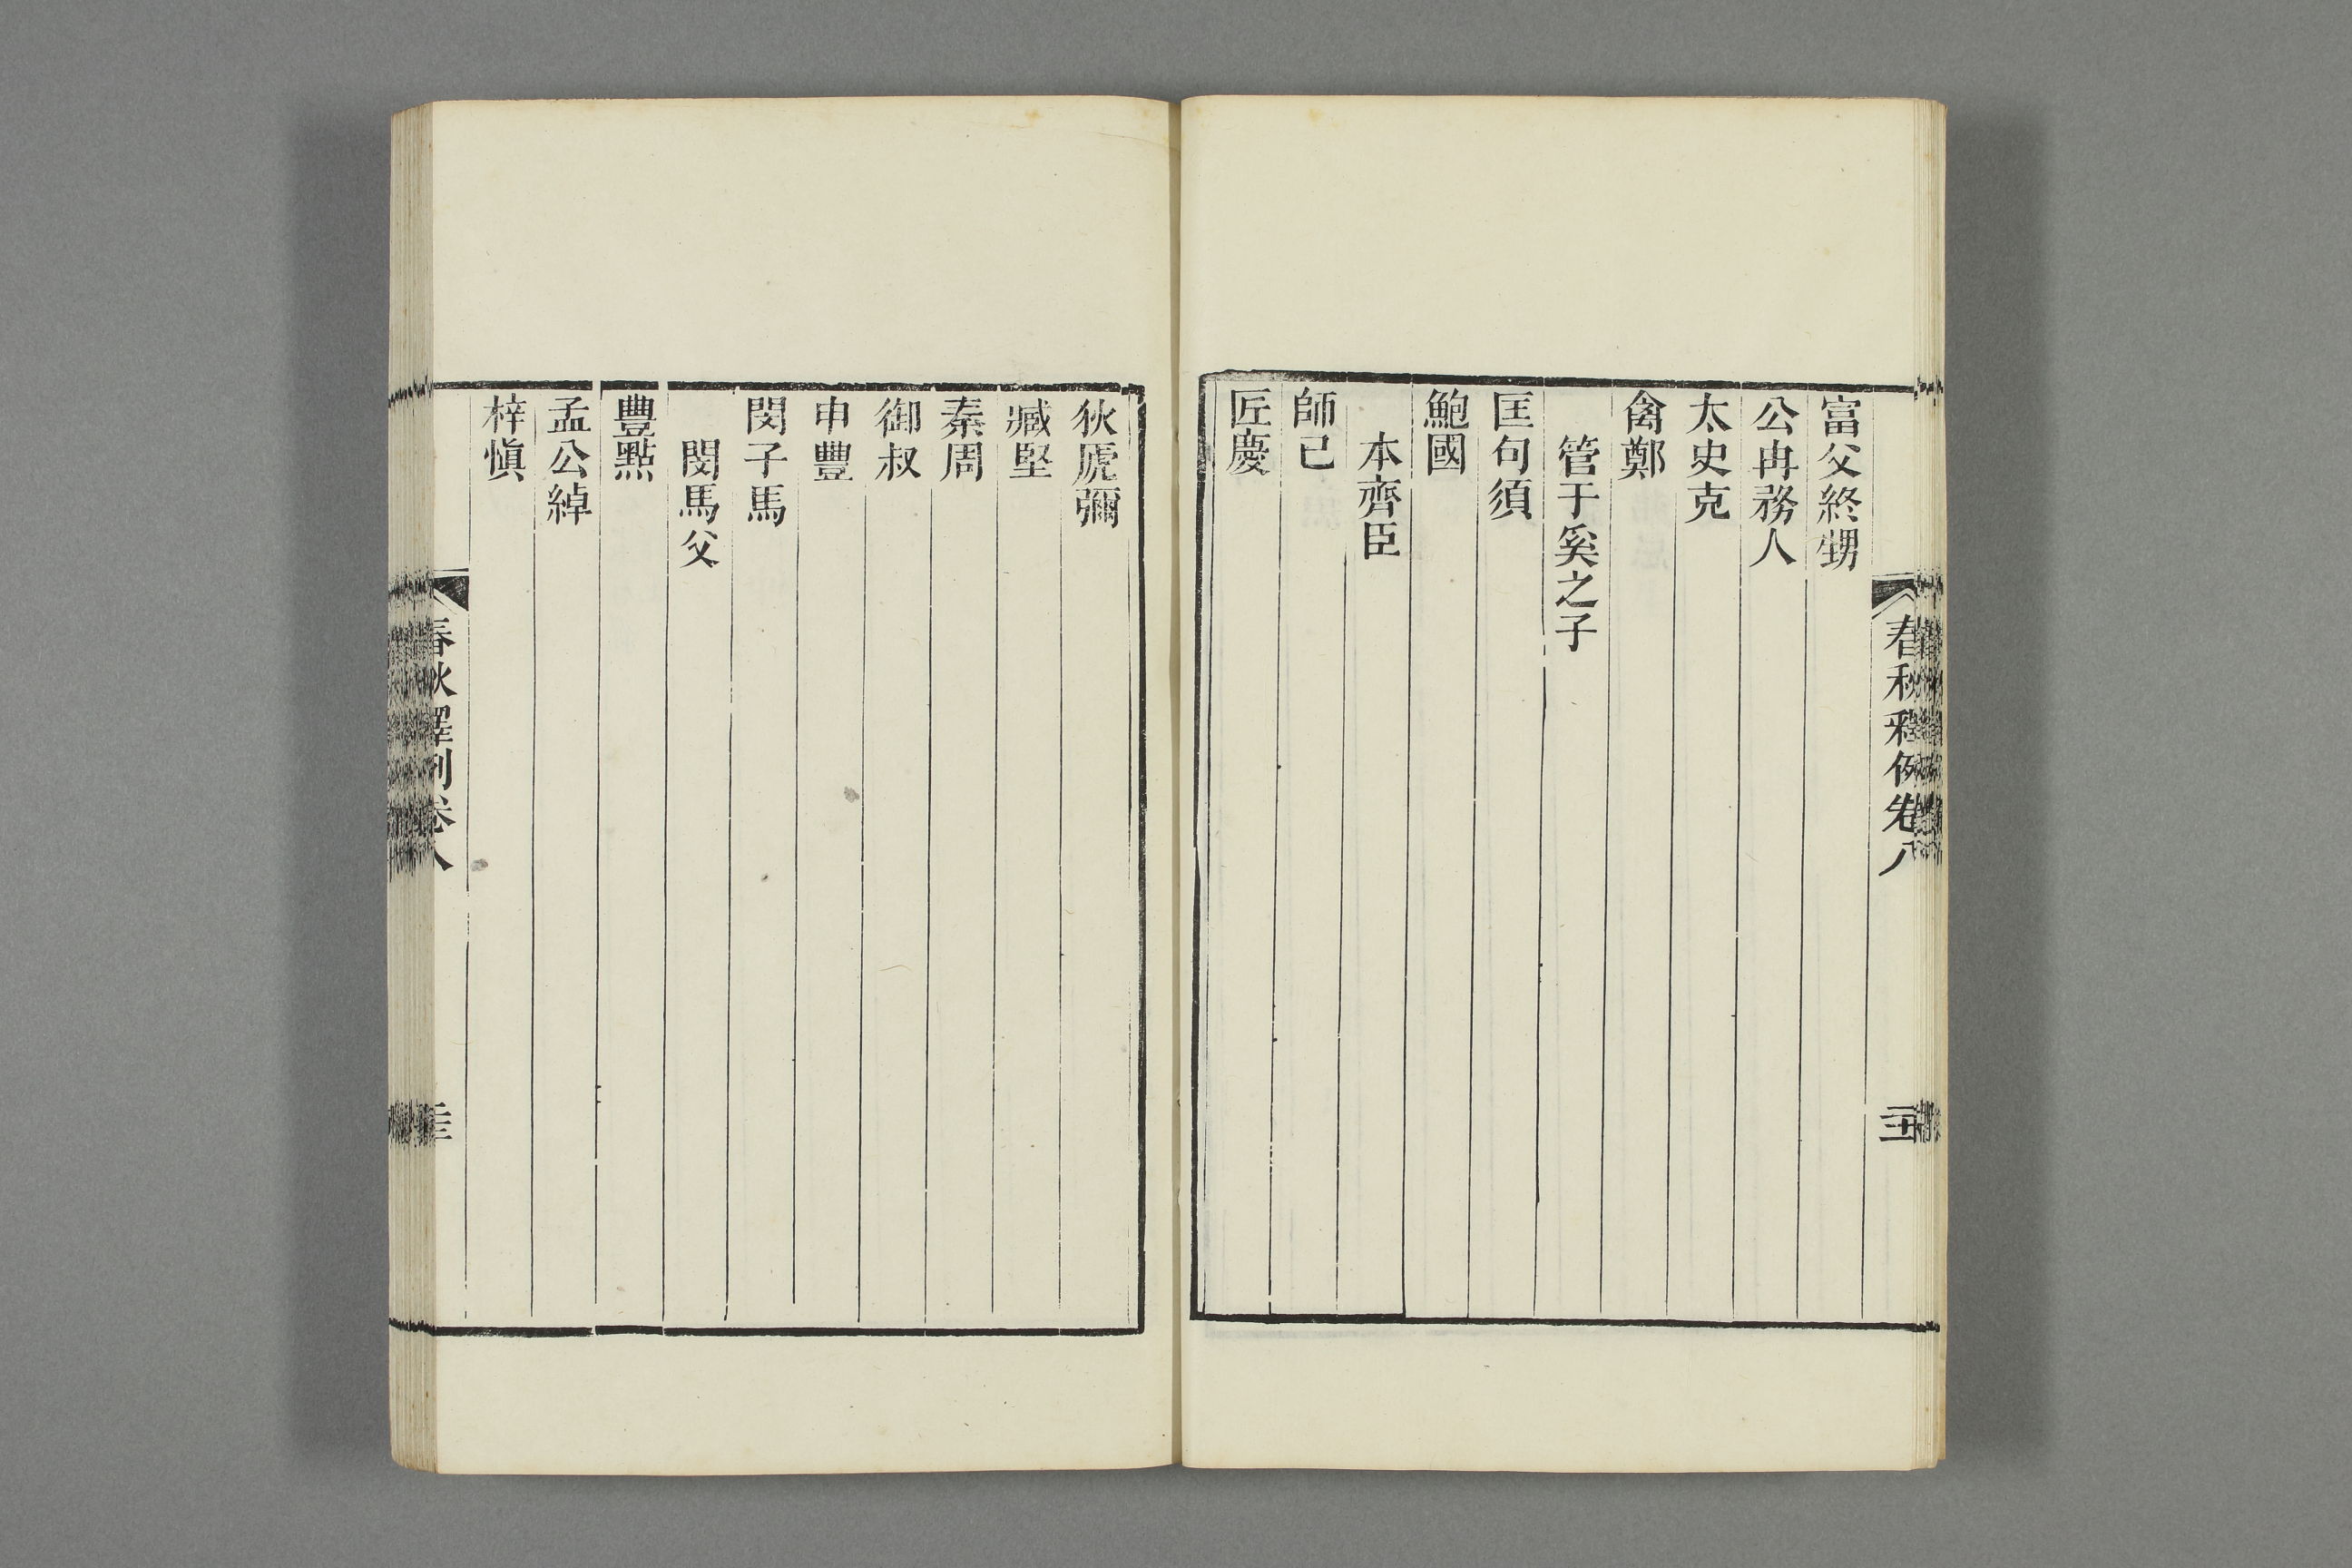 春秋釋例卷八
富父終甥
公冉務人
太史克
禽鄭
管于奚之子
匡句須
鮑國
本齊臣
師已
匠慶
狄虒彌
臧堅
秦周
御叔
申豐
閔子馬
閔馬父
豐點
孟公綽
梓愼
春秋釋例卷八